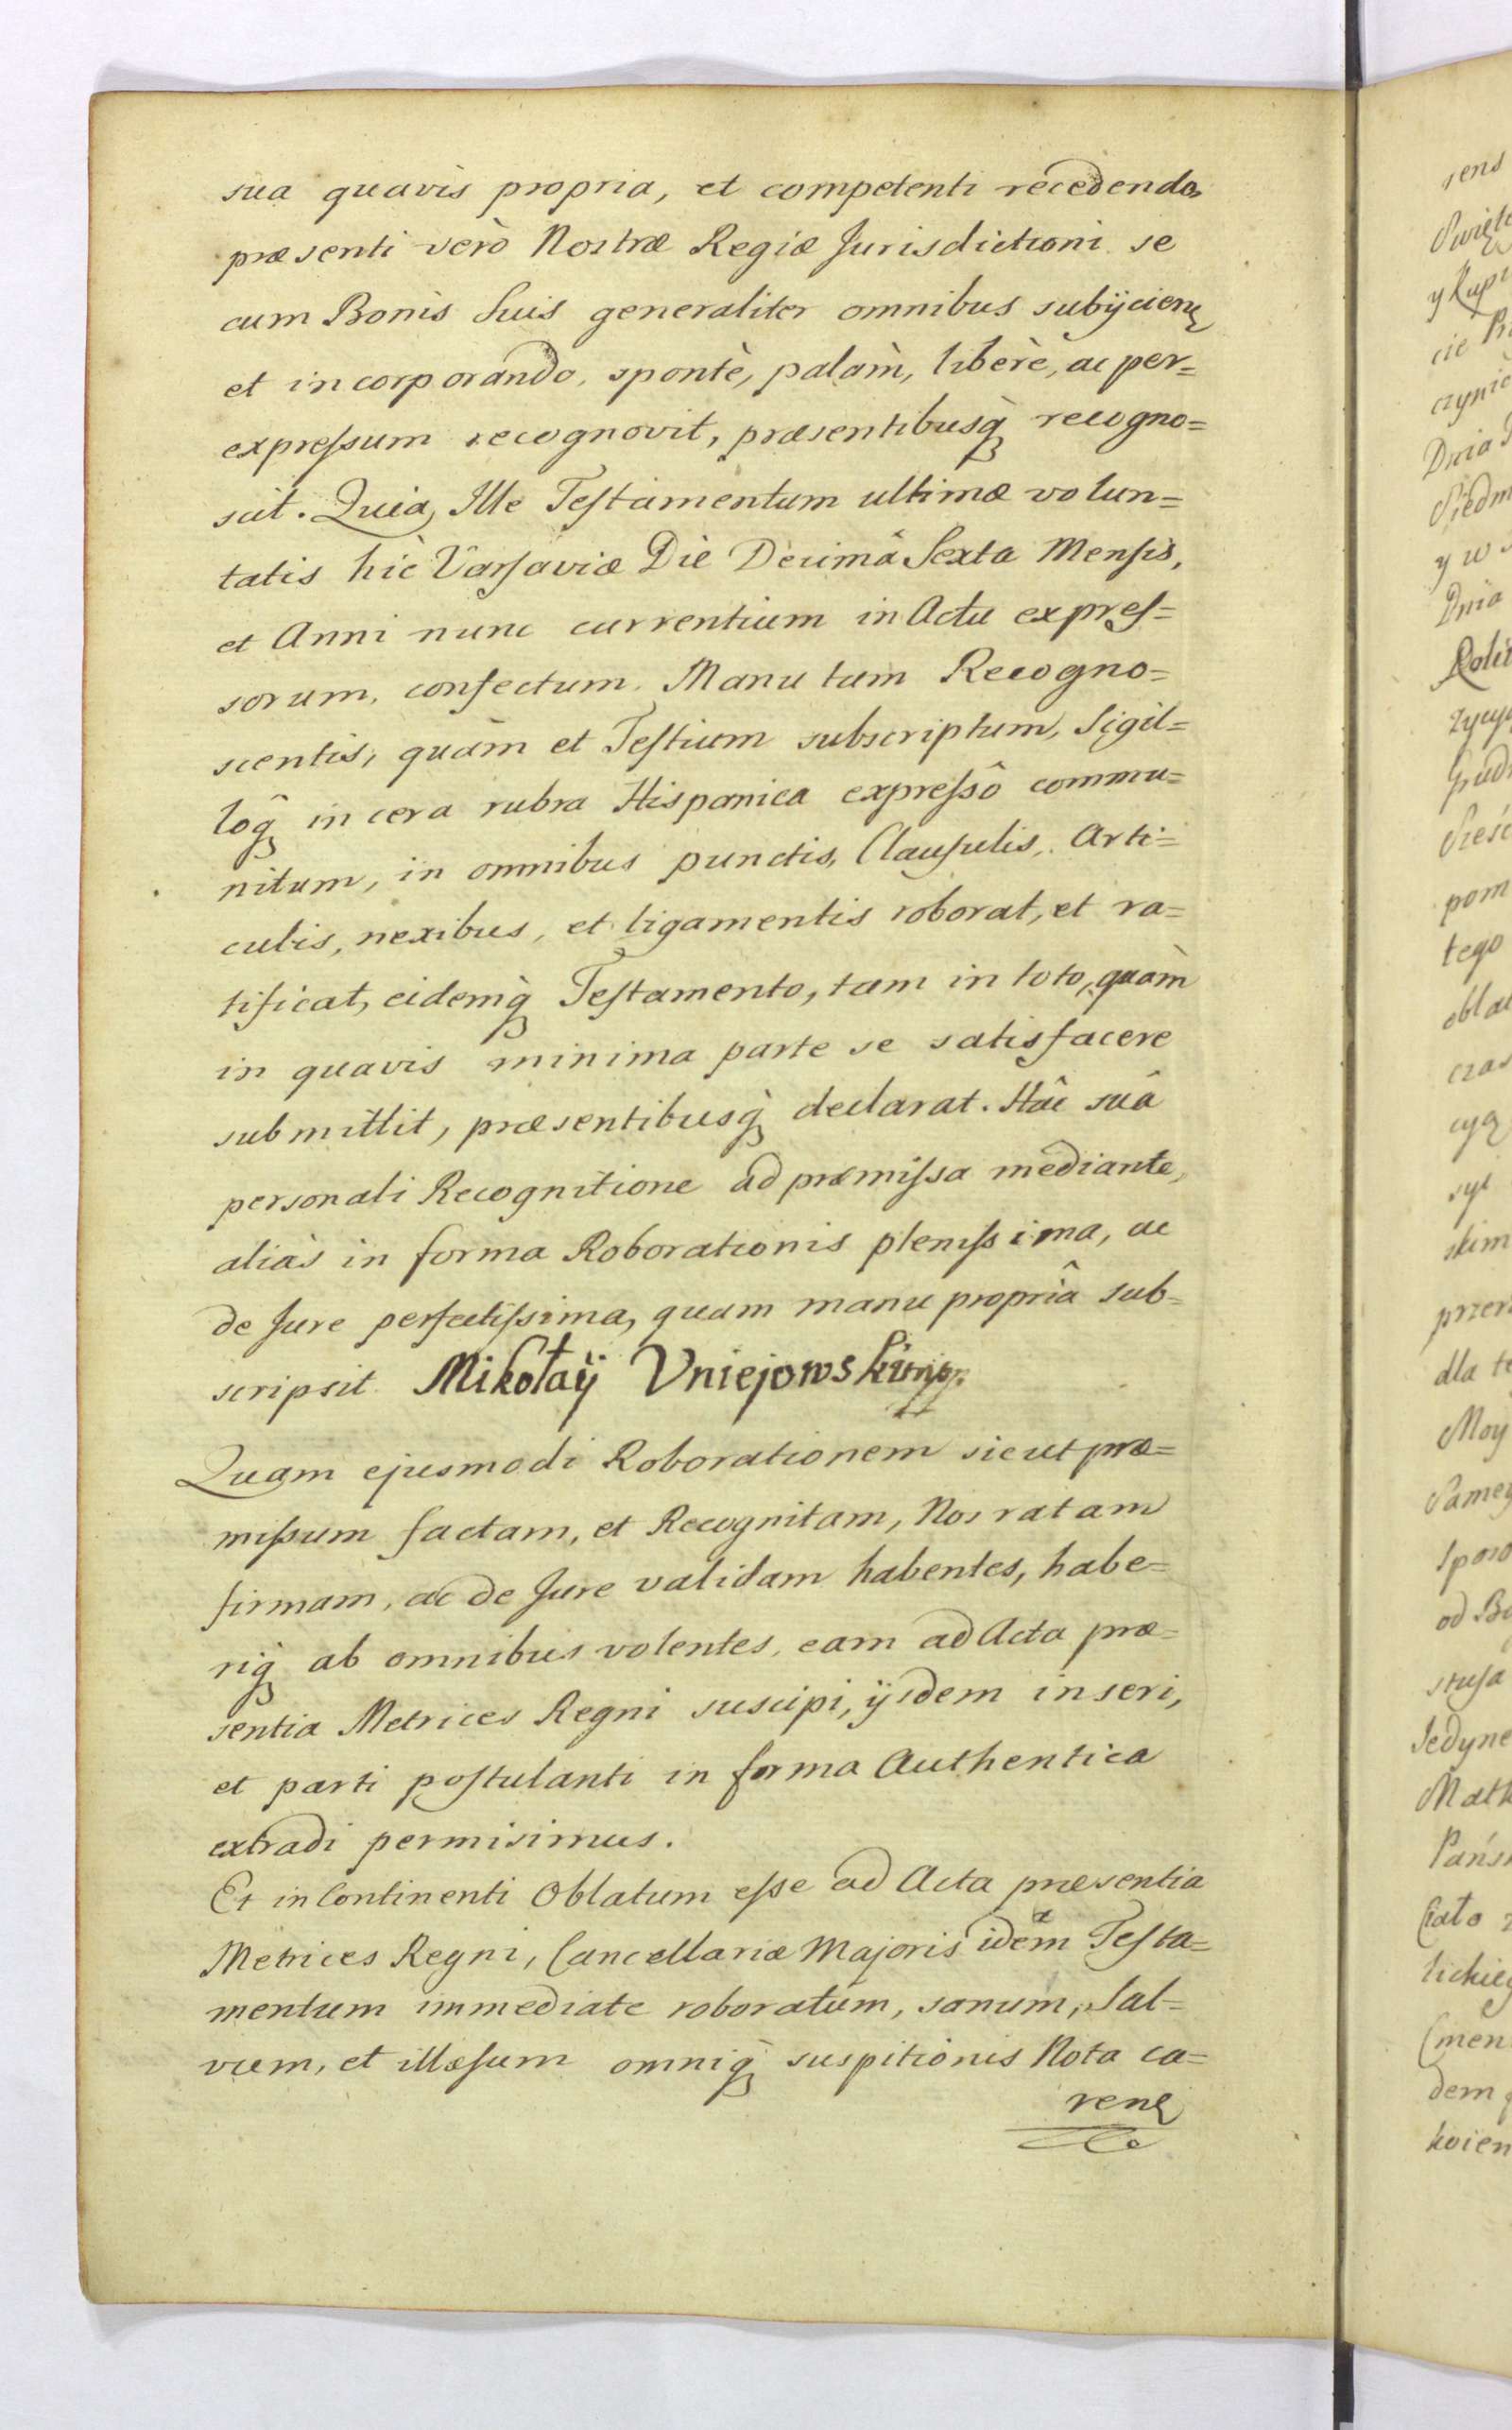 sua quavis propria, et competenti recedendo,
præsenti verò Nostræ Regiæ Jurisdictioni se
cum Bonis Suis generaliter omnibus subijcien
et incorporando, spontè, palàm, liberè, ac per=
expreſsum recognovit, præsentibusq̀ recogno=
scit. Quia, Ille Teſtamentum ultimæ volun=
tatis hìc Varſaviæ Die Decimâ Sexta Menſis,
et Anni nunc currentium in Actu expreſ=
sorum, confectum, Manu tam Recogno=
scentis, quàm et Teſtium subscriptum, Sigil=
lôq̨ in cera rubra Hispanica expreſsô commu=
nitum, in omnibus punctis, Clauſulis, Arti=
culis, nexibus, et ligamentis roborat, et ra=
tificat, eidemq̀ Teſtamento, tam in toto, quàm
in quavis minima parte se satisfacere
submittit, præsentibusq̀ declarat. Hâc suâ
personali Recognitione ad præmiſsa mediante,
aliàs in forma Roborationis pleniſsima, ac
de Jure perfectiſsima, quam manu propriâ sub=
scripsit Mikołaÿ Vniejowski mp.
Quam ejusmodi Roborationem sicut præ=
miſsum factam, et Recognitam, Nos ratam
firmam, ac de Jure validam habentes, habe=
riq̀ ab omnibus volentes, eam ad Acta præ=
sentia Metrices Regni suscipi, ijsdem inseri,
et parti poſtulanti in forma Authentica
extradi permisimus.
Et in Continenti Oblatum eſse ad Acta præsentia
Metrices Regni, Cancellariæ Majoris idem Teſta=
mentum immediate roboratum, sanum, Sal=
vum, et illæſum omniq̀ suspitionis Nota ca=
ren
sens
y w
Dnia
pom
tego
czas
skim
dla
Moy
od
Jedyne
dem